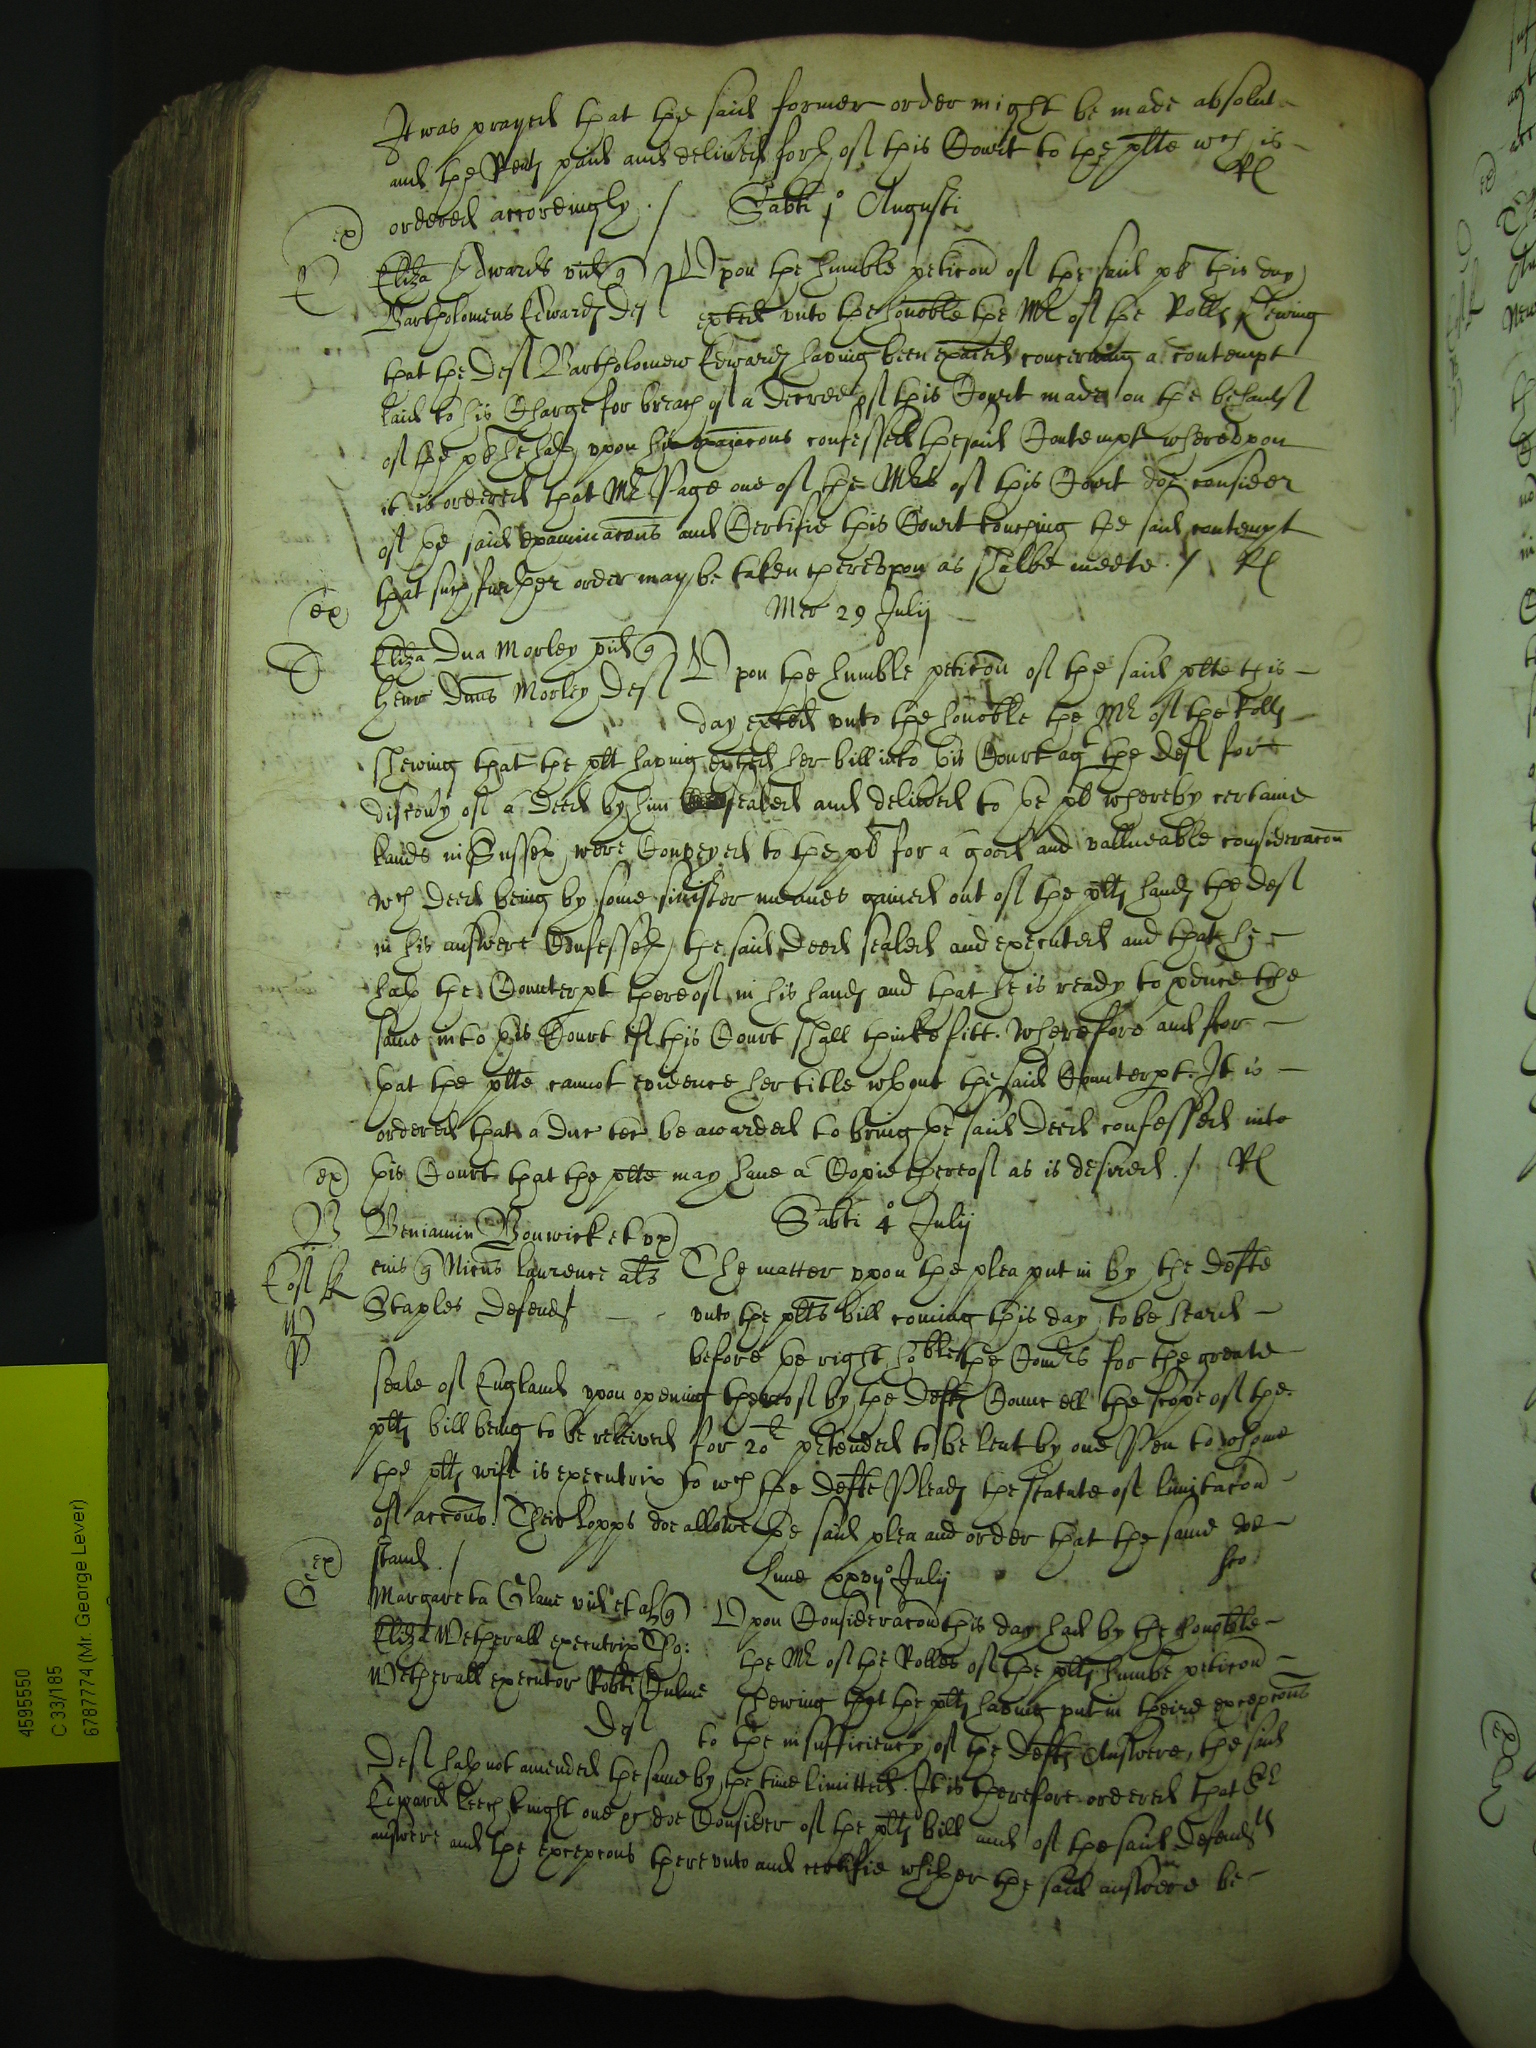 It was prayed that the said former order might be made absolute
and the Rentꝭ paid and delived forth of this Court to the plte wch is
ordered accordingly. / Rl
Sabti 1o Augusti
ex
E
Eliza Edwards vid q
Bartholomeus Edwardꝭ Def
Vpon the humble peticon of the said pl this day
exhted vnto the honoble the Mr of the Rollꝭ shewing
that the Def Bartholomew Edwardꝭ having been exaied concerning a contempt
laid to his Charge for breach of a decree of this Court made on the behaulf
of the pl he hath vpon his exaiacons confessed the said Contempt wherevpon
it is ordered that Mr Page one of the Mrs of this Court doe consider
of the said examinacons and Certifie this Court touching the said contempt
that such further order may be taken therevpon as shalbe meete. / Rl
ex
Mer 29 Julij
D
Eliza Dna Morley vid q
Henr Dns Morley Def
Vpon the humble peticon of the said plte this
day exhted vnto the honoble the Mr of the Rollꝭ
shewing that the plt having exhted her bill into this Court agt the Def for
discovy of a Deed by him sealed and delived to the pl whereby certaine
lands in Sussex were Conveyed to the pl for a good and valluable consideracon
wch deed being by some sinister meanes gained out of the pltꝭ handꝭ the def
in his answere Confesseth the said Deed sealed and executed and that he
hath the Counterpt thereof in his handꝭ and that he is ready to pduce the
same into this Court if this Court shall thinke fitt. Wherefore and for
that the plte cannot evidence her title wthout the said Counterpt. It is
ordered that a Duc tec be awarded to bring the said Deed confessed into
this Court that the plte may have a Copie thereof as is desired. / Rl
ex
Sabti 4o Julij
B
Beniamin Bonwick et vx
eius q Nicus Laurence als
Staples Defend
The matter vpon the plea put in by the defte
vnto the plts bill coming this day to be heard
before the right hoble the Comrs for the greate
seale of England vpon opening thereof by the Deftꝭ Councell the scope of the
pltꝭ bill being to be releived for 20l ptended to be lent by one Pen to whome
the pltꝭ wife is executrix to wch the Defte Pleadꝭ the statute of limitacon
of accons. Their Lopps doe allowe the said plea and order that the same
stand. /
ex
Lune xxvijo Julij
G
Margareta vid et al q
Eliza Wetherall executrix Tho:
Wetherall executor Robti
Def
Vpon Consideracon this day had by the honoble
the Mr of the Rolles of the pltꝭ humble peticon
shewing that the pltꝭ having put in theire excepcons
to the insufficiency of the Deftꝭ Answere, the said
Def hath not amended the same by the time limitted. It is therefore ordered that Sr
Edward Leech Knight one &c doe Consider of the pltꝭ bill and of the said Defendts
answere and the excepcons there vnto and certifie whither the said answere be
4595550
C 33/185
6787774 (Mr. George Lever)